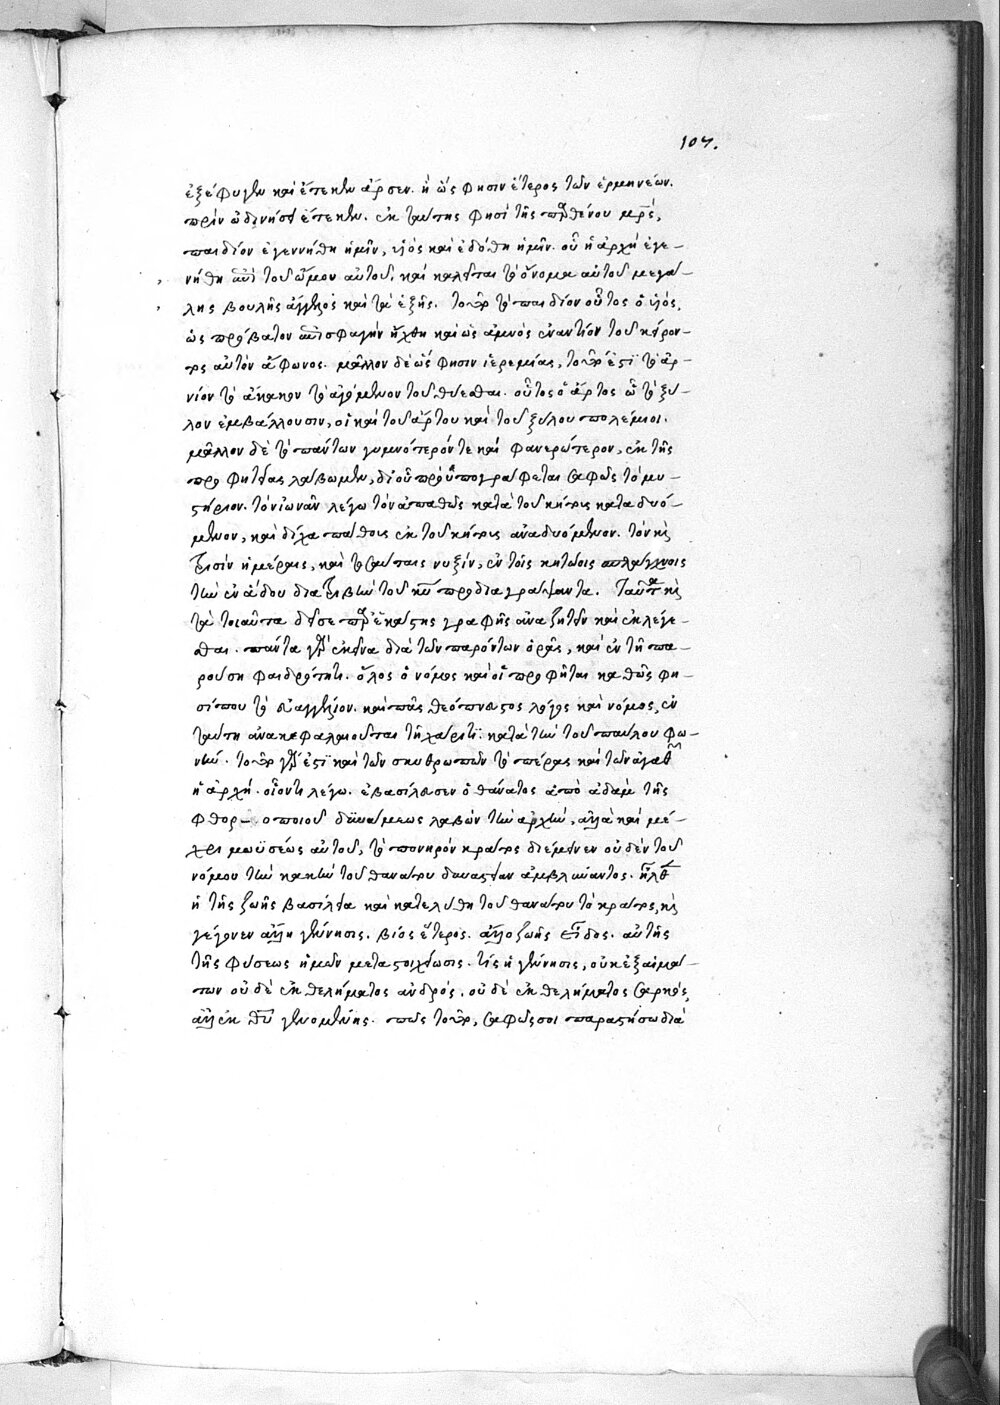 107.
ἐξέφυγεν καὶ ἔτεκεν ἄρσεν. ἢ ὥς φησιν ἕτερος τῶν ἑρμηνέων.
πρὶν ὠδινῆσαι ἔτεκεν. ἐκ ταύτης φησὶ τῆς παρθένου μρς,
παιδίον ἐγεννήθη ἡμῖν, υἱὸς καὶ ἐδόθη ἡμῖν. οὗ ἡ ἀρχὴ ἐγε-
νήθη ἐπὶ τοῦ ὤμου αὐτοῦ, καὶ καλεῖται τὸ ὄνομα αὐτοῦ μεγά-
λης βουλῆς ἄγγελος καὶ τὰ ἑξῆς. τοῦτο τὸ παιδίον οὗτος ὁ υἱός,
ὡς πρόβατον ἐπὶ σφαγὴν ἤχθη καὶ ὡς ἀμνὸς ἐναντίον τοῦ κείρον-
τος αὐτὸν ἄφωνος. μᾶλλον δὲ ὥς φησιν ἱερεμίας, τοῦτό ἐστι τὸ ἀρ-
νίον τὸ ἄκακον τὸ ἀγόμενον τοῦ θύεσθαι. οὗτος ὁ ἄρτος ᾧ τὸ ξύ-
λον ἐμβάλλουσιν, οἱ καὶ τοῦ ἄρτου καὶ τοῦ ξύλου πολέμιοι.
μᾶλλον δὲ τὸ πάντων γυμνότερόν τε καὶ φανερώτερον, ἐκ τῆς
προφητείας λάβωμεν, δι οὗ προϋπογράφεται σαφῶς τὸ μυ-
στήριον. τὸν ἰωνᾶν λέγω τὸν ἀπαθῶς κατὰ τοῦ κήτους καταδυό-
μενον, καὶ δίχα πάθους ἐκ τοῦ κήτους ἀναδυόμενον. τὸν καὶ
τρισὶν ἡμέραις, καὶ τοσαύταις νυξίν, ἐν τοῖς κητώοις σπλάγχνοις
τὴν ἐν ᾅδου διατριβὴν τοῦ κυ προδιαγράψαντα. ταῦτα καὶ
τὰ τοιαῦτα δεῖ σε παρ ἑκάστης γραφῆς ἀναζητεῖν καὶ ἐκλέγε-
σθαι. πάντα γὰρ ἐκεῖνα διὰ τῶν παρόντων ὁρᾷς, καὶ ἐν τῇ πα-
ρούσῃ φαιδρότητι. ὅλος ὁ νόμος καὶ οἱ προφῆται καθώς φη-
σί που τὸ εὐαγγέλιον. καὶ πᾶς θεόπνευστος λόγος καὶ νόμος, ἐν
ταύτῃ ἀνακεφαλαιοῦται τῇ χάριτι. κατὰ τὴν τοῦ παύλου φω-
νήν. τοῦτο γάρ ἐστι καὶ τῶν σκυθρωπῶν τὸ πέρας καὶ τῶν ἀγαθῶν
ἡ ἀρχή. οἷόν τι λέγω. ἐβασίλευσεν ὁ θάνατος ἀπὸ ἀδὰμ τῆς
φθορ- ο ποιοῦ δυνάμεως λαβὼν τὴν ἀρχήν, ἀλλὰ καὶ μέ-
χρι μωϋσέως αὐτοῦ, τὸ πονηρὸν κράτος διέμεινεν οὐδὲν τοῦ
νόμου τὴν κακὴν τοῦ θανάτου δυναστείαν ἀμβλύναντος. ἦλθεν
ἡ τῆς ζωῆς βασιλεία καὶ κατελύθη τοῦ θανάτου τὸ κράτος, καὶ
γέγονεν ἄλλη γέννησις. βίος ἕτερος. ἄλλο ζωῆς εἶδος. αὐτῆς
τῆς φύσεως ἡμῶν μεταστοιχείωσις. τίς ἡ γέννησις, οὐκ ἐξ αἱμά-
των οὐδὲ ἐκ θελήματος ἀνδρός, οὐδὲ ἐκ θελήματος σαρκός,
ἀλλ ἐκ θυ γενομένης. πῶς τοῦτο, σαφῶς σοι παραστήσω διὰ